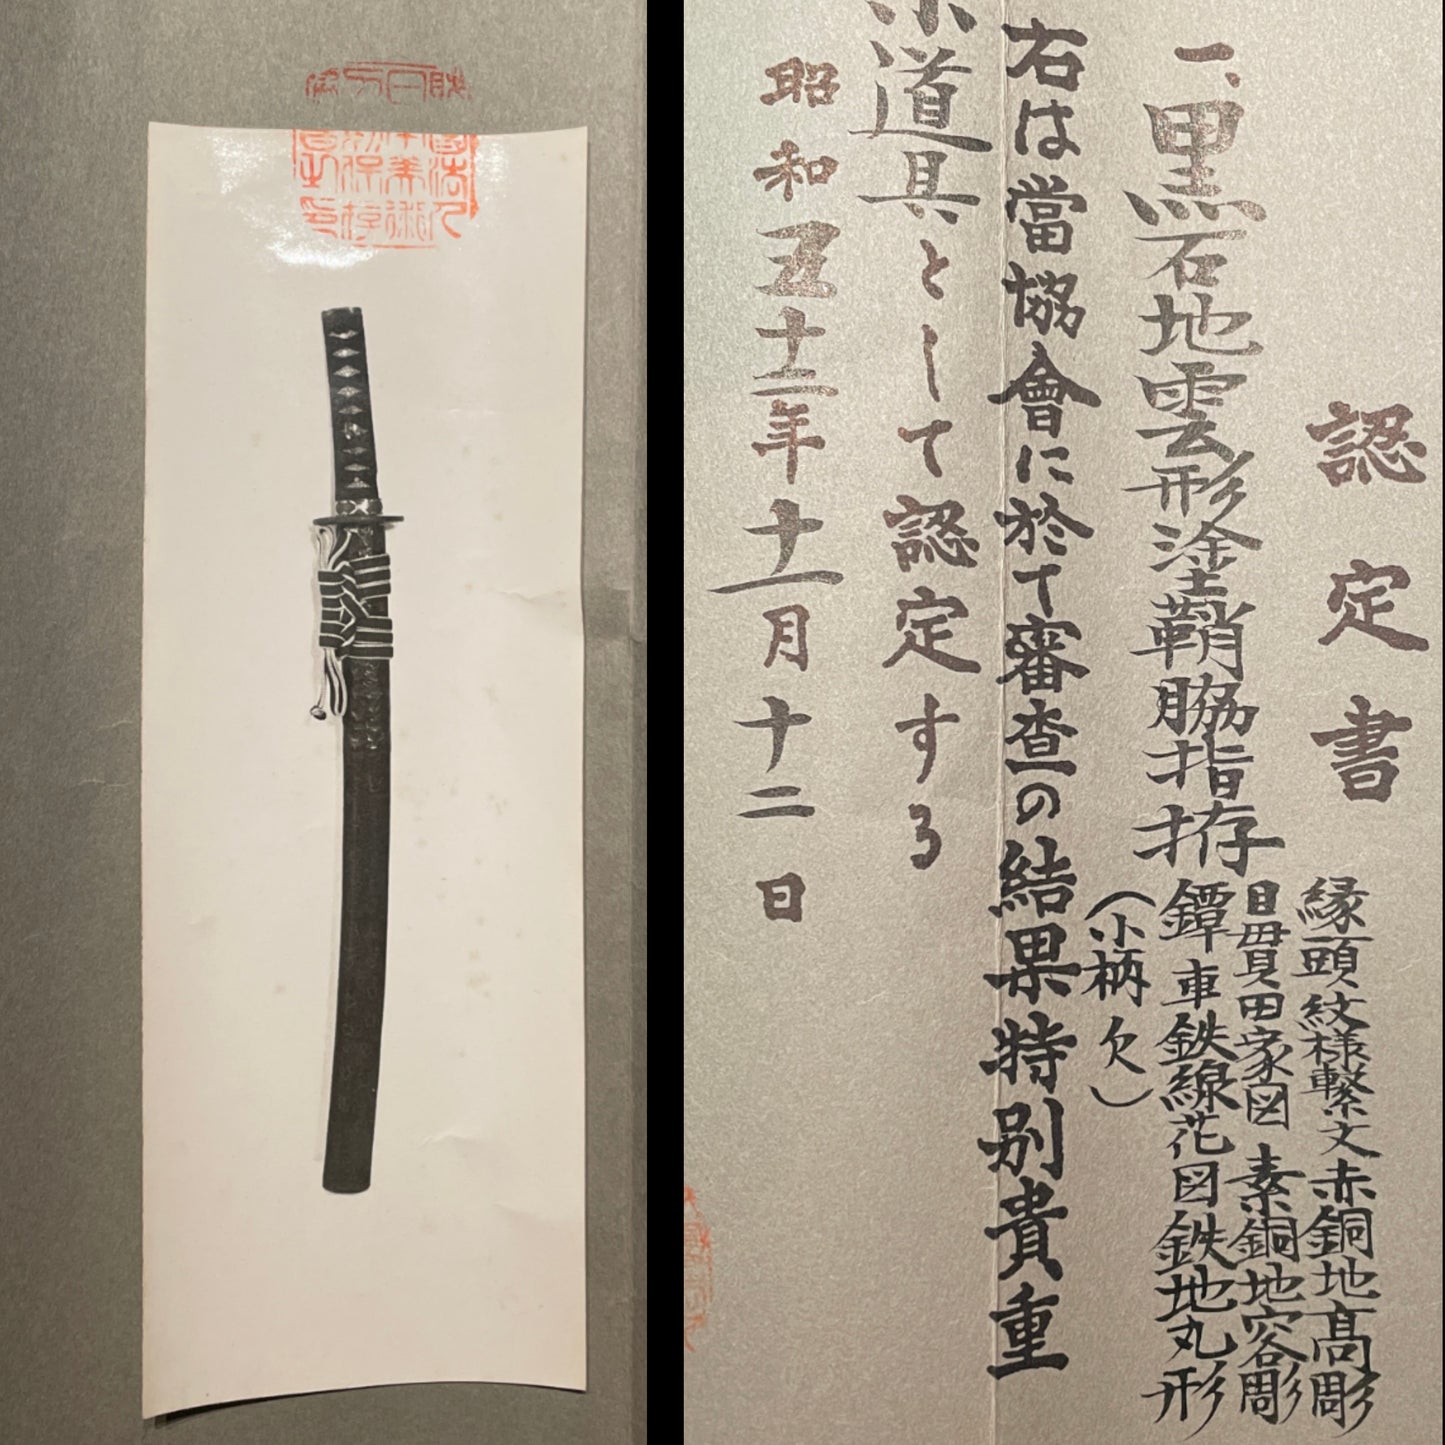 財團法人
日本美術
刀劍保存
會之印
認定書
一、黒石地雲形塗鞘脇指拵
縁頭紋様繋文赤銅地高彫
目貫田家図 素銅地容彫
鐔車鉄線花図鉄地丸形
(小柄欠)
右は當協會に於て審査の結果特別貴重
小道具として認定する
昭和五十二年十一月十二日